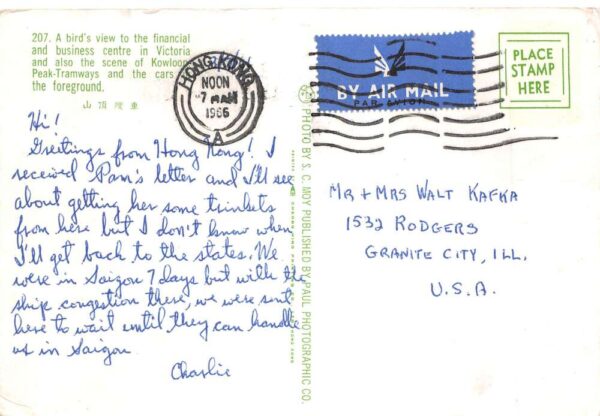 207. A bird's view to the financial
and business centre in Victoria
and also the scene of Kowloon
Peak-Tramways and the cars
the foreground.
山頂纜車
HONG KONG
NOON
7 MAR
1966
A
BY AIR MAIL
PAR AVION
PLACE
STAMP
HERE
Hi!
Greetings from Hong Kong! I
received Pam's letter and I'll see
about getting her some trinkets
from here but I don't know when
I'll get back to the states. We
were in Saigon 7 days but with the
ship congestion there, we were sent
here to wait until they can handle
us in Saigon.
Charlie
PHOTO BY S. C. MOY PUBLISHED BY PAUL PHOTOGRAPHIC CO.
MR + MRS WALT KAFKA
1532 RODGERS
GRANITE CITY, ILL.
U.S.A.